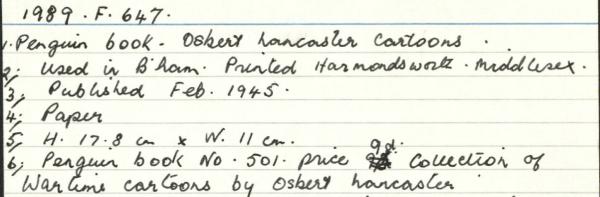 1989.F.647.
1. Penguin book - Osbert Lancaster Cartoons.
2; Used in B'ham. Printed Harmondsworth - Middlesex.
3; Published Feb. 1945.
4; Paper
5; H. 17.8 cm x W. 11 cm.
6; Penguin book No. 501. price 9d. Collection of
Wartime cartoons by Osbert Lancaster